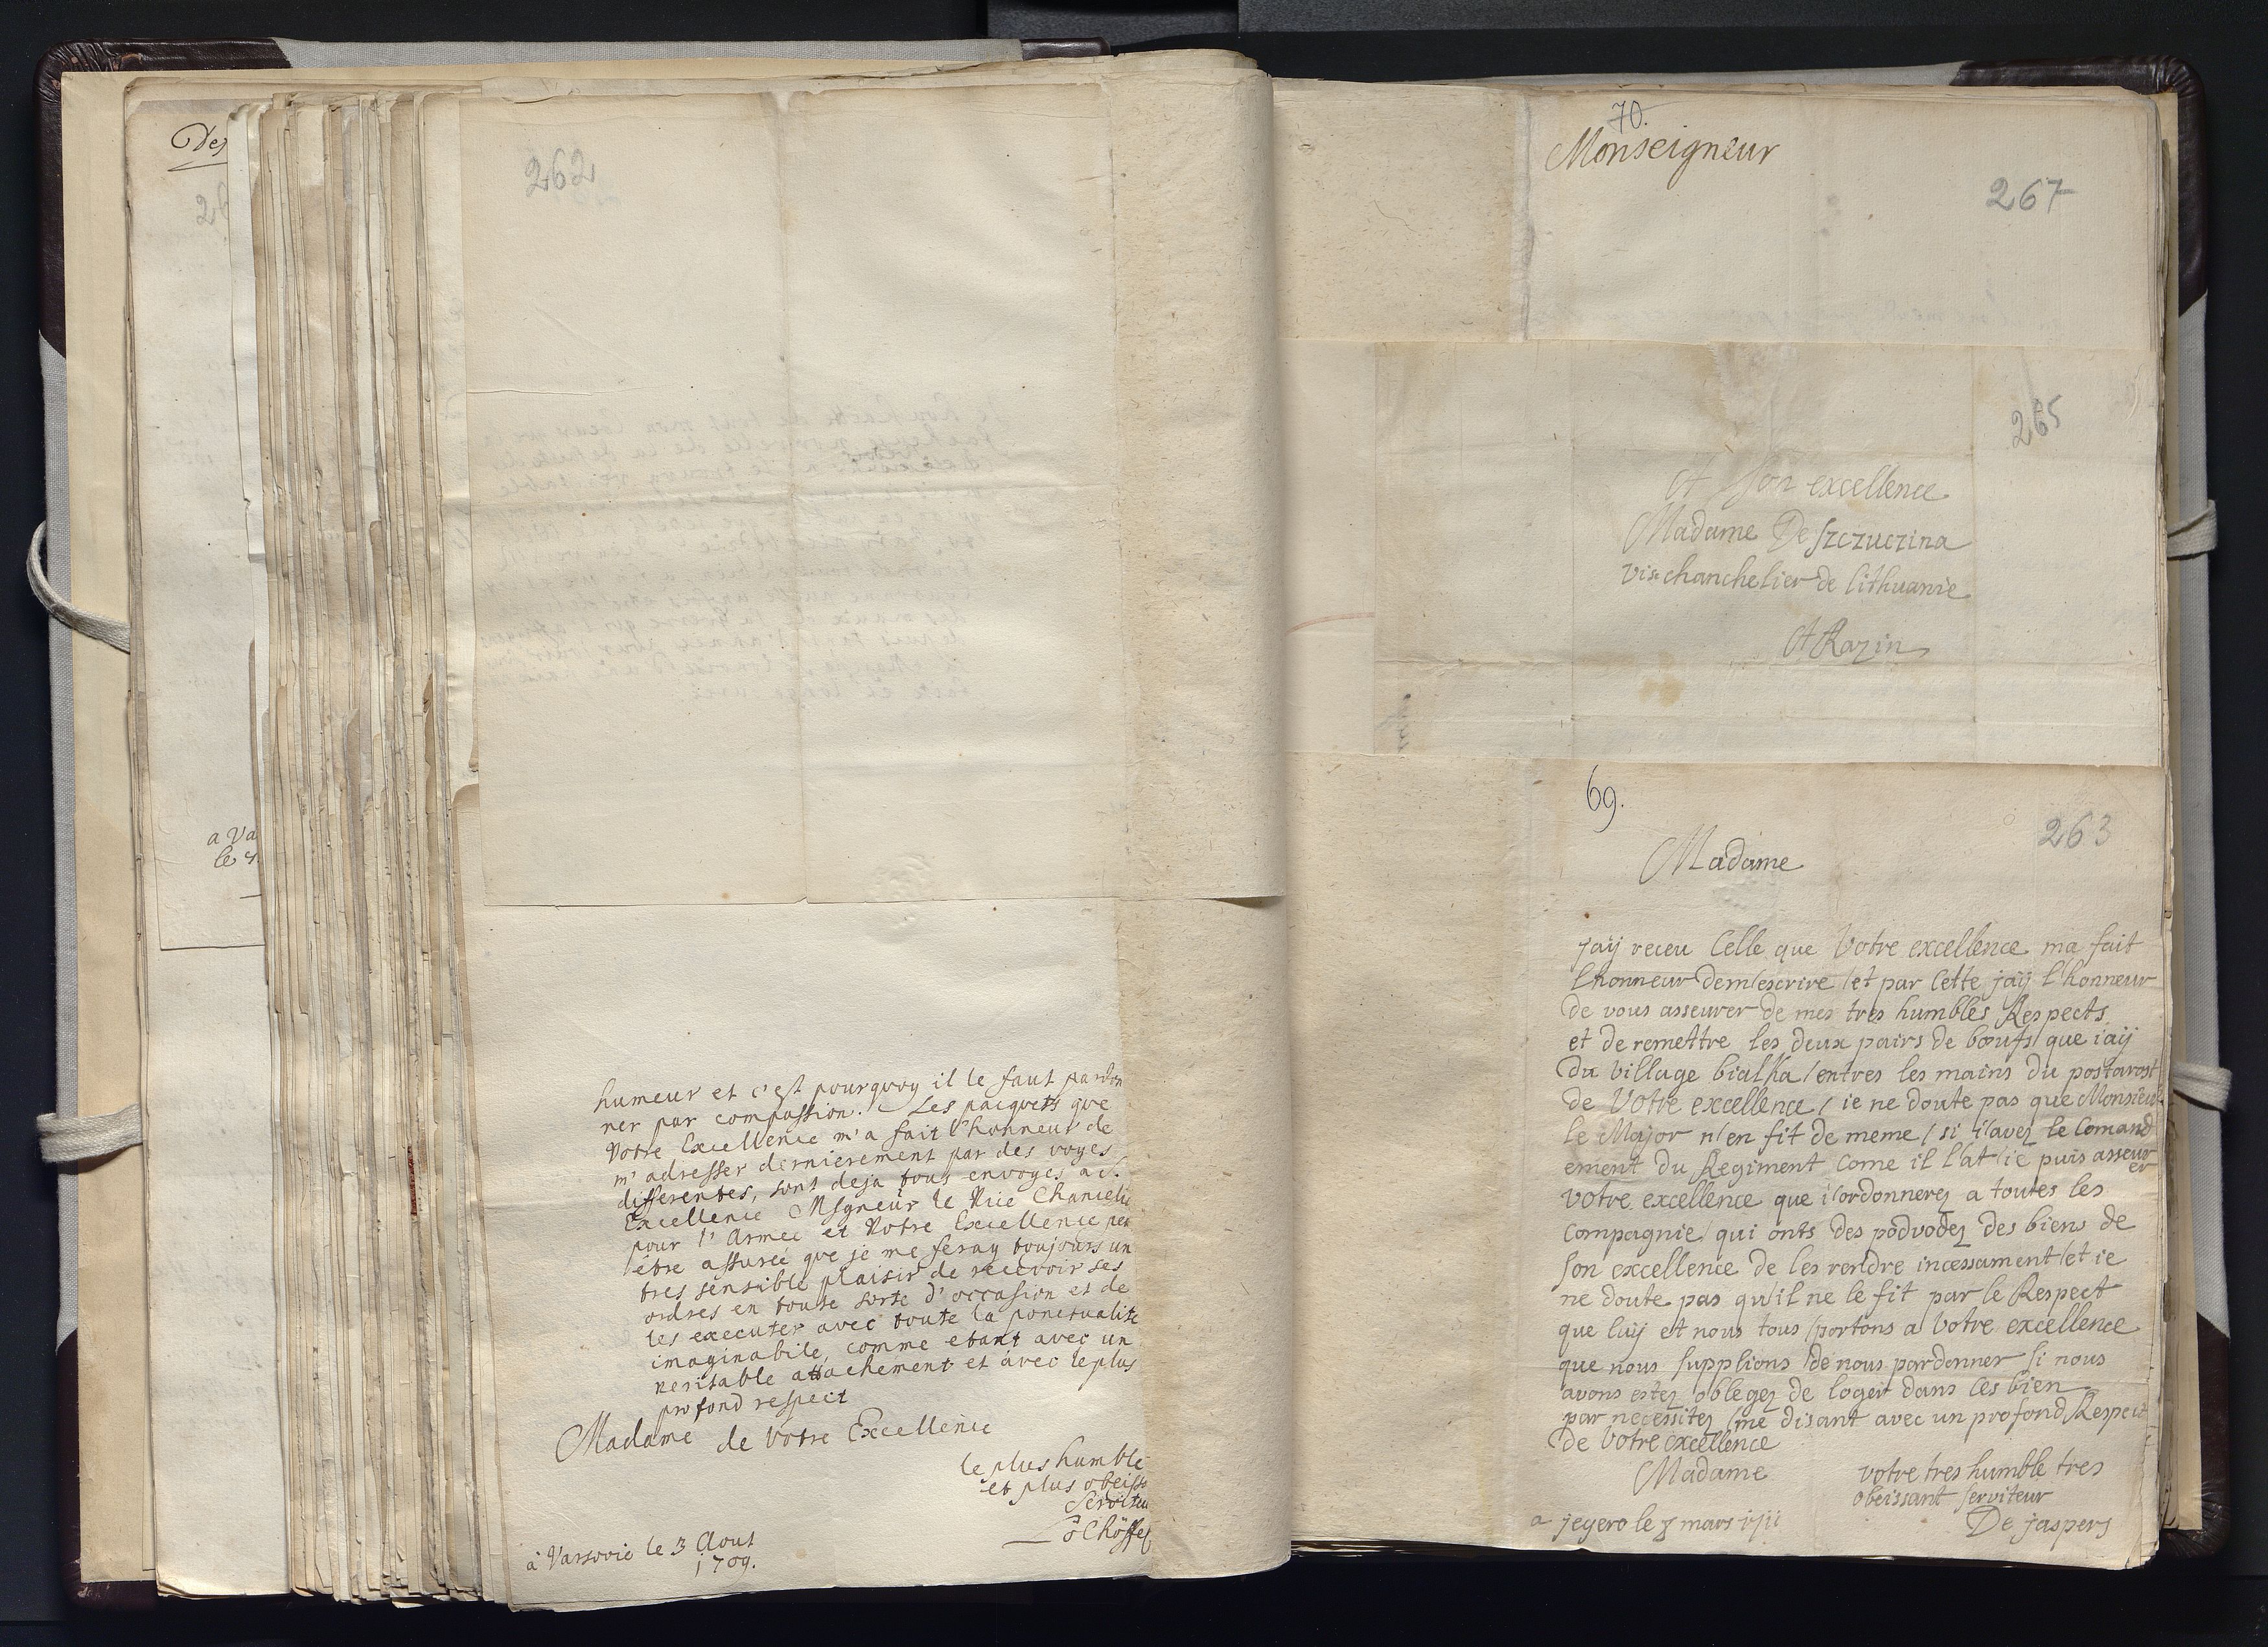 Des
262
humeur et c'est pourquoy il le faut pardon
ner par compassion. Les pacquets que
Votre Excellence m'a fait l'honneur de
m'adresser dernierement par des voyes
differentes, sont deja tous envoyes a S.
Excellence Msgneur le Vice Chancelie
pour l'Armee et Votre Excellence peu
être assurée que je me feray toujours un
tres sensible plaisir de recevoir ses
ordres en toute sorte d'occasion et de
les executer avec toute la ponctualite
imaginabile, comme etant avec un
veritable attachement et avec le plus
profond respect
Madame de Votre Excellence
le plus humble
et plus obeiss
Serviteu
à Varsovie le 3 Aout
1709.
a Va
le
70.
Monseigneur
267
265
A Son excellence
Madame De Szczuczina
Vischanchelier de lithuanie
A Razin
69.
263
Madame
jaÿ receu Celle que Votre excellence ma fait
lhonneur dem escrire / et par Cette jaÿ l'honneur
de vous asseurer de mes tres humbles Respects
et de remettre les deux pairs de bœufs que iaÿ
du village bialka / entres les mains du postarost
de Votre excellence / ie ne doute pas que Monsieu
le Major n'en fit de meme / si i'avez le Comand
ement du Regiment come il l'at / ie puis asseur
er
votre excellence que i'ordonnerez a toutes les
Compagnie / qui onts des podvodez des biens de
Son excellence de les rendre incessament / et ie
ne doute pas qu'il ne le fit par le Respect
que luÿ et nous tous / portons a Votre excellence
que nous supplions de nous pardonner si nous
avons estez oblegez de loger dans ces bien
par necessitez / me disant avec un profond Respect
de Votre excellence
Madame
votre tres humble tres
obeissant serviteur
a jeyero le 8 mars 1711
De jaspers